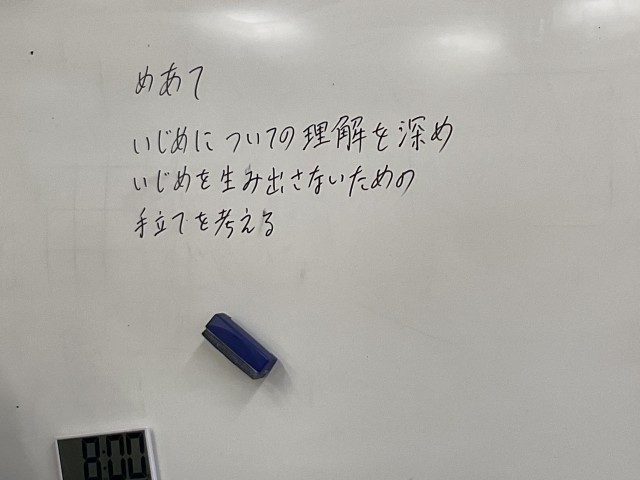 めあて
いじめについての理解を深め
いじめを生み出さないための
手立てを考える
8:00